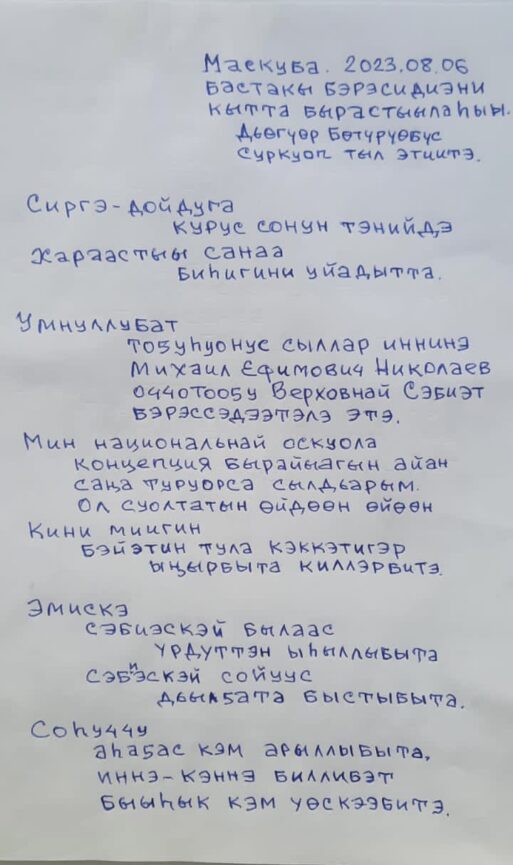 Маскуба. 2023.08.06
Бастакы бэрэсидиэни
кытта бырастыылаһыы.
Дьөгүөр Бөтүрүөбүс
Суркуоп тыл этиитэ.
Сиргэ-дойдуга
курус сонун тэнийдэ
Хараастыы санаа
биһигини уйадытта.
Умнуллубат
тоҕуһуонус сыллар иннинэ
Михаил Ефимович Николаев
оччотооҕу Верховнай Сэбиэт
бэрэссэдээтэлэ этэ.
Мин национальнай оскуола
концепция бырайыагын айан
саҥа туруорса сылдьарым.
Ол суолтатын өйдөөн өйөөн
Кини миигин
бэйэтин тула кэккэтигэр
ыҥырбыта киллэрбитэ.
Эмискэ
сэбиэскэй былаас
үрдүттэн ыһыллыбыта
Сэбиэскэй сойуус
дьылҕата быстыбыта.
Соһуччу
аһаҕас кэм арыллыбыта,
иннэ-кэннэ биллибэт
быыһык кэм үөскээбитэ.